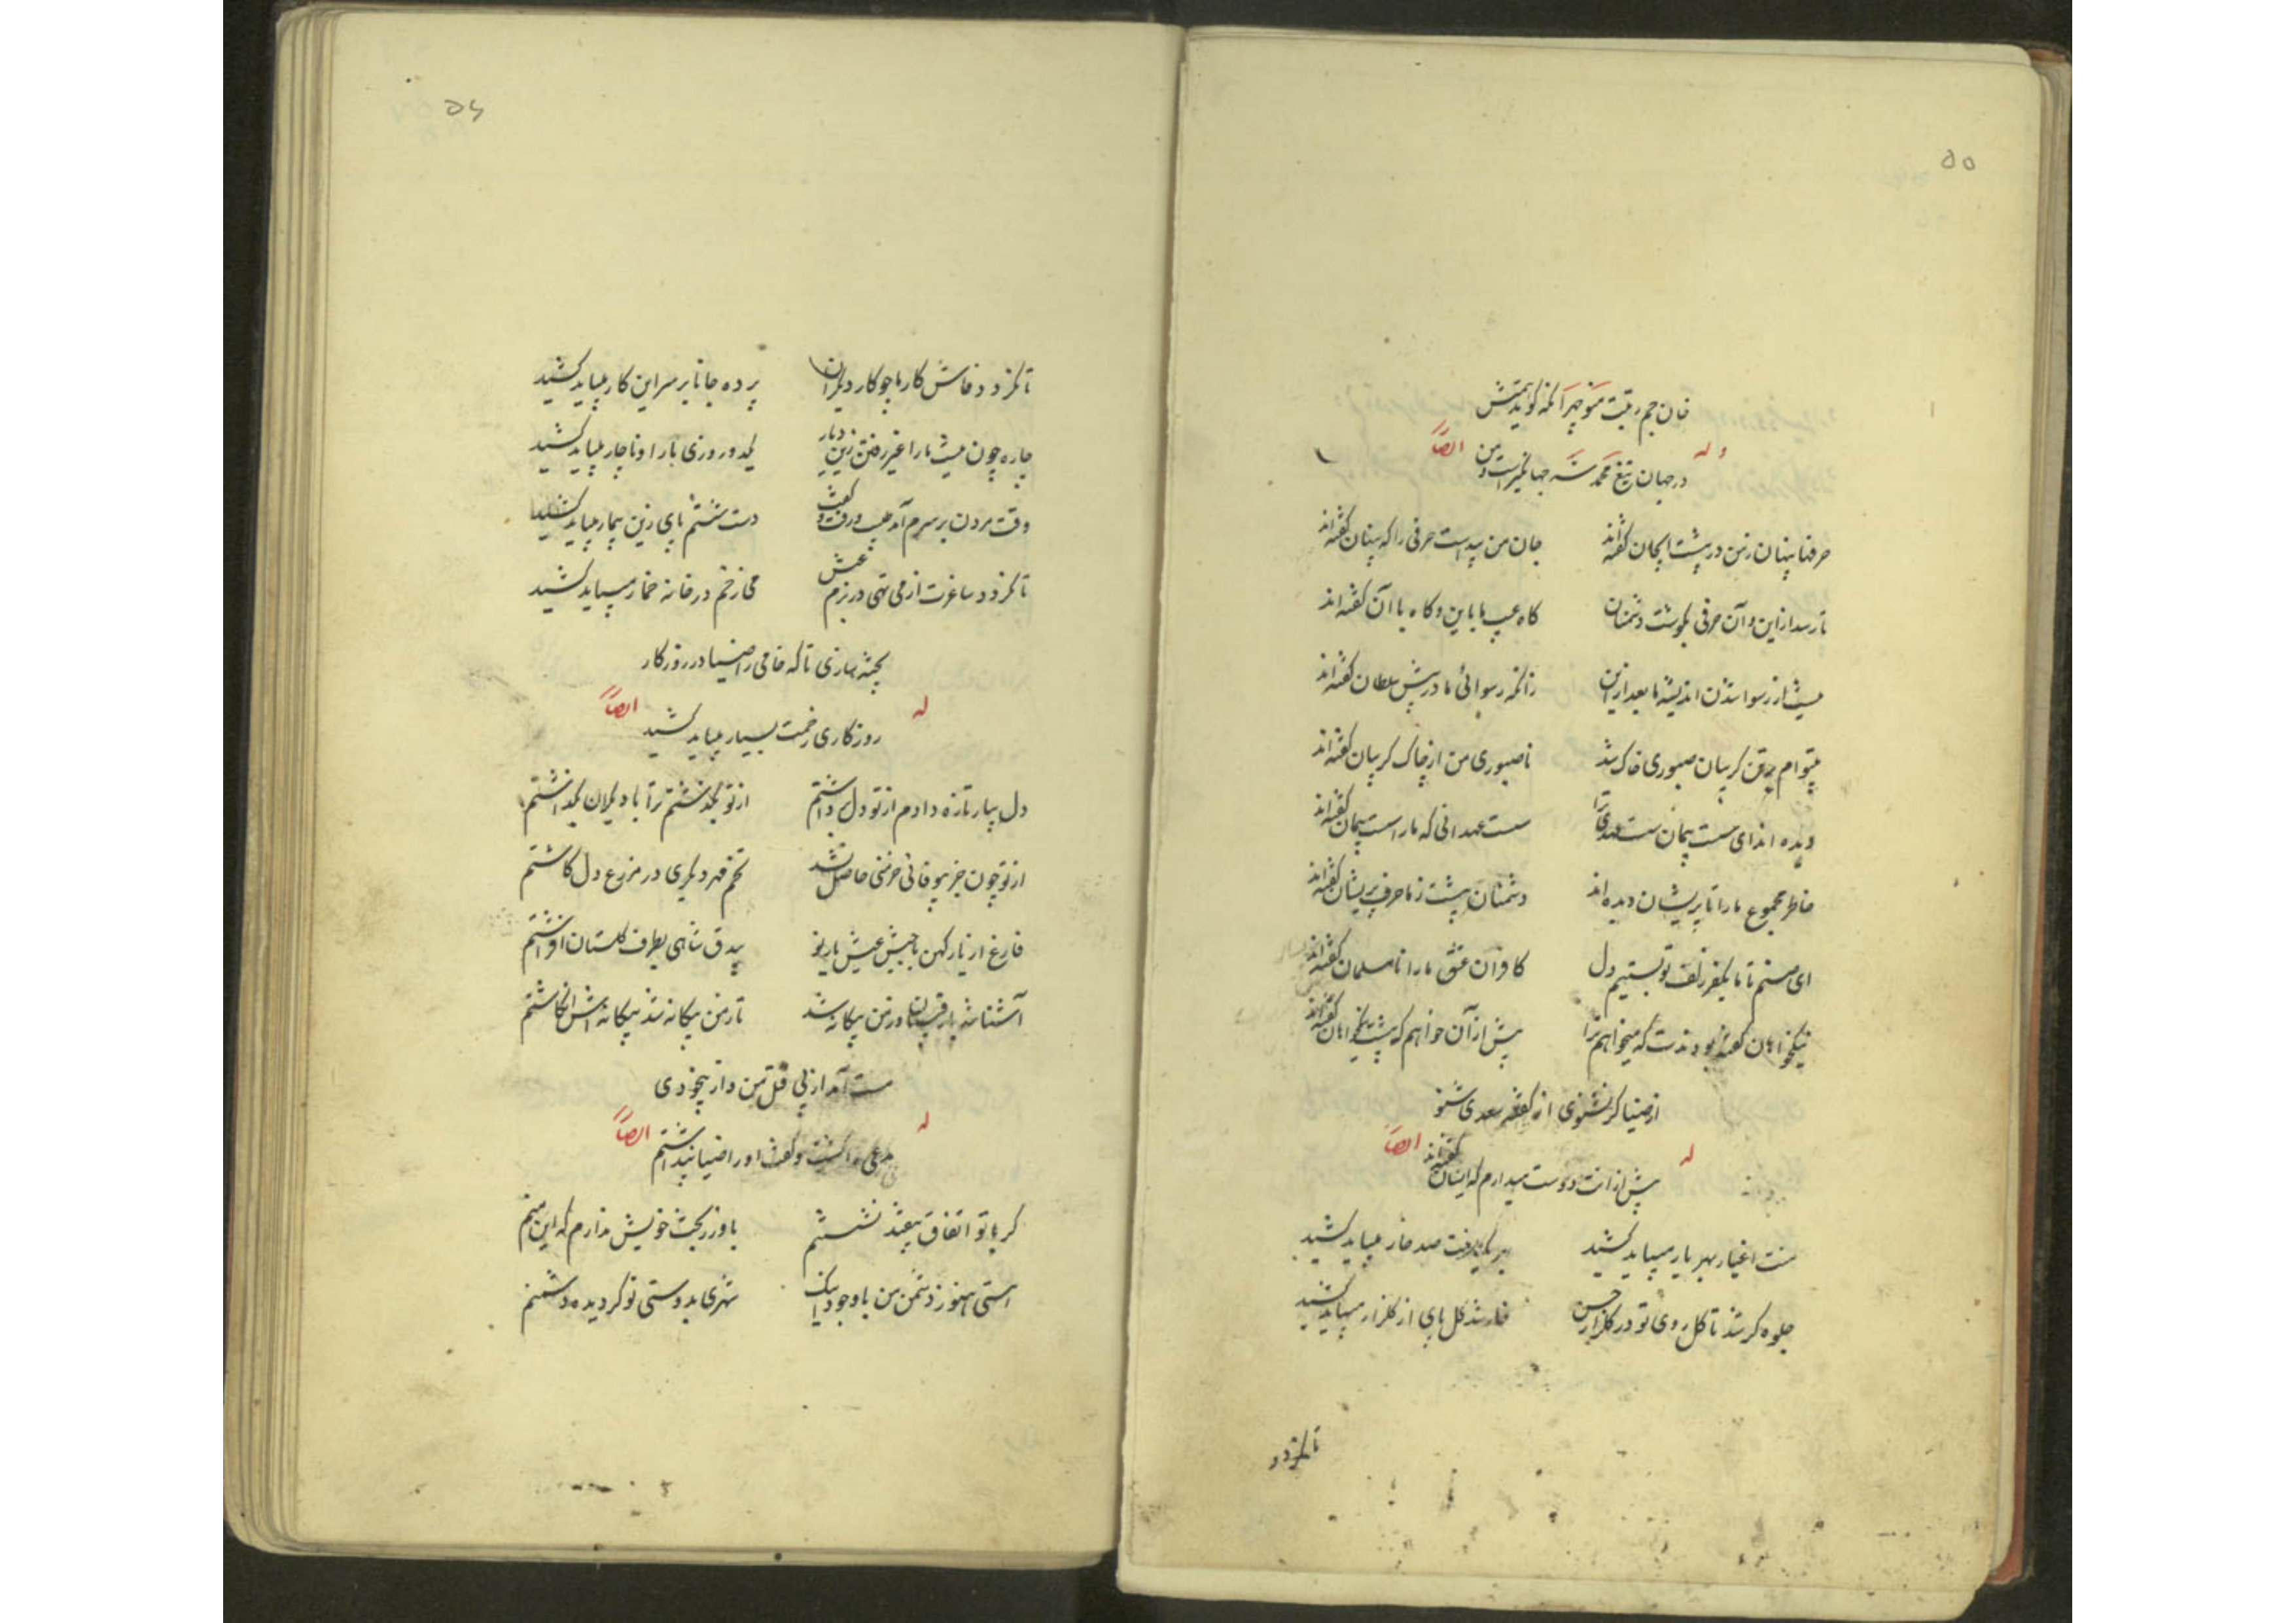 ۵۵
خان جم رتبت منوچهر آنکه گوید همتش
وله ایضاً
در جهان تیغ محمد شه جهانگیر است و من
حرفها پنهان ز من در پیشت ایجان گفته‌اند جان من پیداست حرفی را که پنهان گفته‌اند
تا رسد از این و آن حرفی بگوشت دشمنان گاه عیب ما باین و گاه با آن گفته‌اند
نیست از رسوا شدن اندیشه ما بعد ازین زانکه رسوائی ما در پیش سلطان گفته‌اند
گریبان صبوری چاک شد ناصبوری من از چاک گریبان گفته‌اند
دیده اند ای سست پیمان سست عهدی ترا سست عهدانی که ما را سست پیمان گفته‌اند
خاطر مجموع ما را تا پریشان دیده‌اند دشمنان پیشت ز ما حرف پریشان گفته‌اند
ای صنم تا ما بکفر زلف تو بستیم دل کافران عشق ما را نامسلمان گفته‌اند
نیکخواهان گفته بودندت که میخواهم ترا پیش از آن خواهم که پیشت نیکخواهان گفته‌اند
از ضیا گر نشنوی از گفته سعدی شنو
له ایضاً
بیش از آنت دوست میدارم که اینان گفته‌اند
منت اغیار بهر یار میباید کشید بهر یک گل منت صد خار میباید کشید
جلوه گر شد تا گل روی تو در گلزار حسن خار شد گل پای از گلزار میباید کشید
تا نگردد
۵۶
تا نگردد فاش کار ما چو کار دیگران پرده جانا بر سر این کار میباید کشید
چاره چون نیست ما را غیر رفتن زین دیار یکدو روزی بار او ناچار میباید کشید
وقت مردن بر سرم آمد طبیب و رفت و گفت دست شستم پای زین بیمار میباید کشید
تا نگردد ساغرت از می تهی در بزم عیش می ز خم در خانه خمار میباید کشید
پخته سازی تا که خامی را ضیا در روزگار
له ایضاً
روزگاری زحمت بسیار میباید کشید
دل بیار تازه دادم از تو دل برداشتم از تو بگذشتم ترا با دیگران بگذاشتم
از تو چون جز بیوفائی خرمنی حاصل نشد تخم مهر دیگری در مزرع دل کاشتم
فارغ از یار کهن با جیش عیش یار نو بیدق شاهی بطرف گلستان افراشتم
آشنا شد با رقیبان و ز من بیگانه شد تا ز من بیگانه شد بیگانه‌اش انگاشتم
مست آمد از پی قتل من و از بیخودی
له ایضاً
مدعی را کشت و گفت او را ضیا پنداشتم
گر با تو اتفاق بیفتد نشستنم باور ز بخت خویش ندارم که این منم
هستی هنوز دشمن من با وجود آنک شهری بدوستی تو گردیده دشمنم